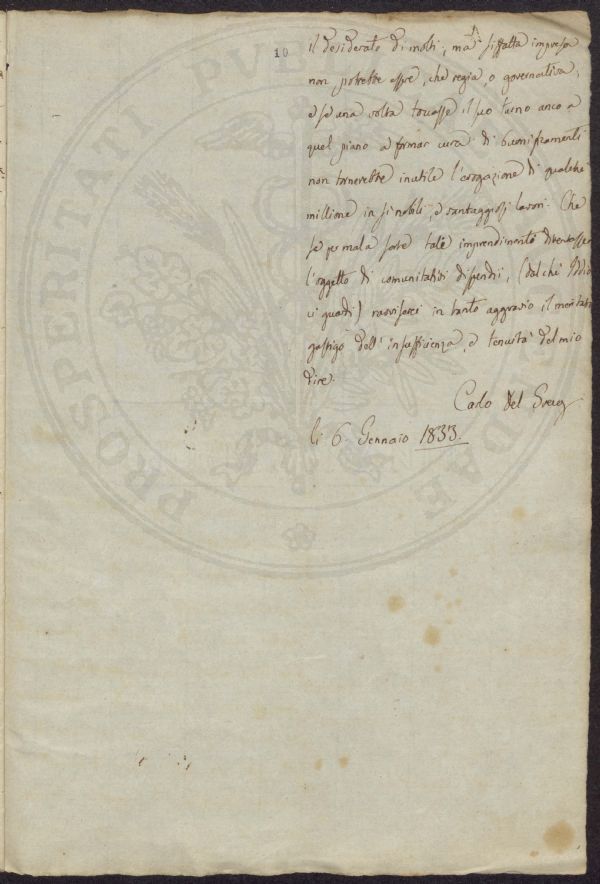 10
il desiderato di molti; ma siffatta impresa
non potrebbe essere, che regia, o governativa,
e se una volta toccasse il suo turno anco a
quel piano a formar cura di buoni
non tornerebbe inutile l'erogazione di qualche
millione in sì nobili, e vantaggiosi lavori. Che
se per mala sorte tale imprendimento diventasse
l'oggetto di comunitativi dispendii, (dal che Iddio
ci guardi) in tanto aggravio il meritato
gastigo dell'insufficienza, e tenuità del mio
dire.
Carlo del
li 6. Gennaio 1833.
PROSPERITATI PUBLICAE AUGENDAE